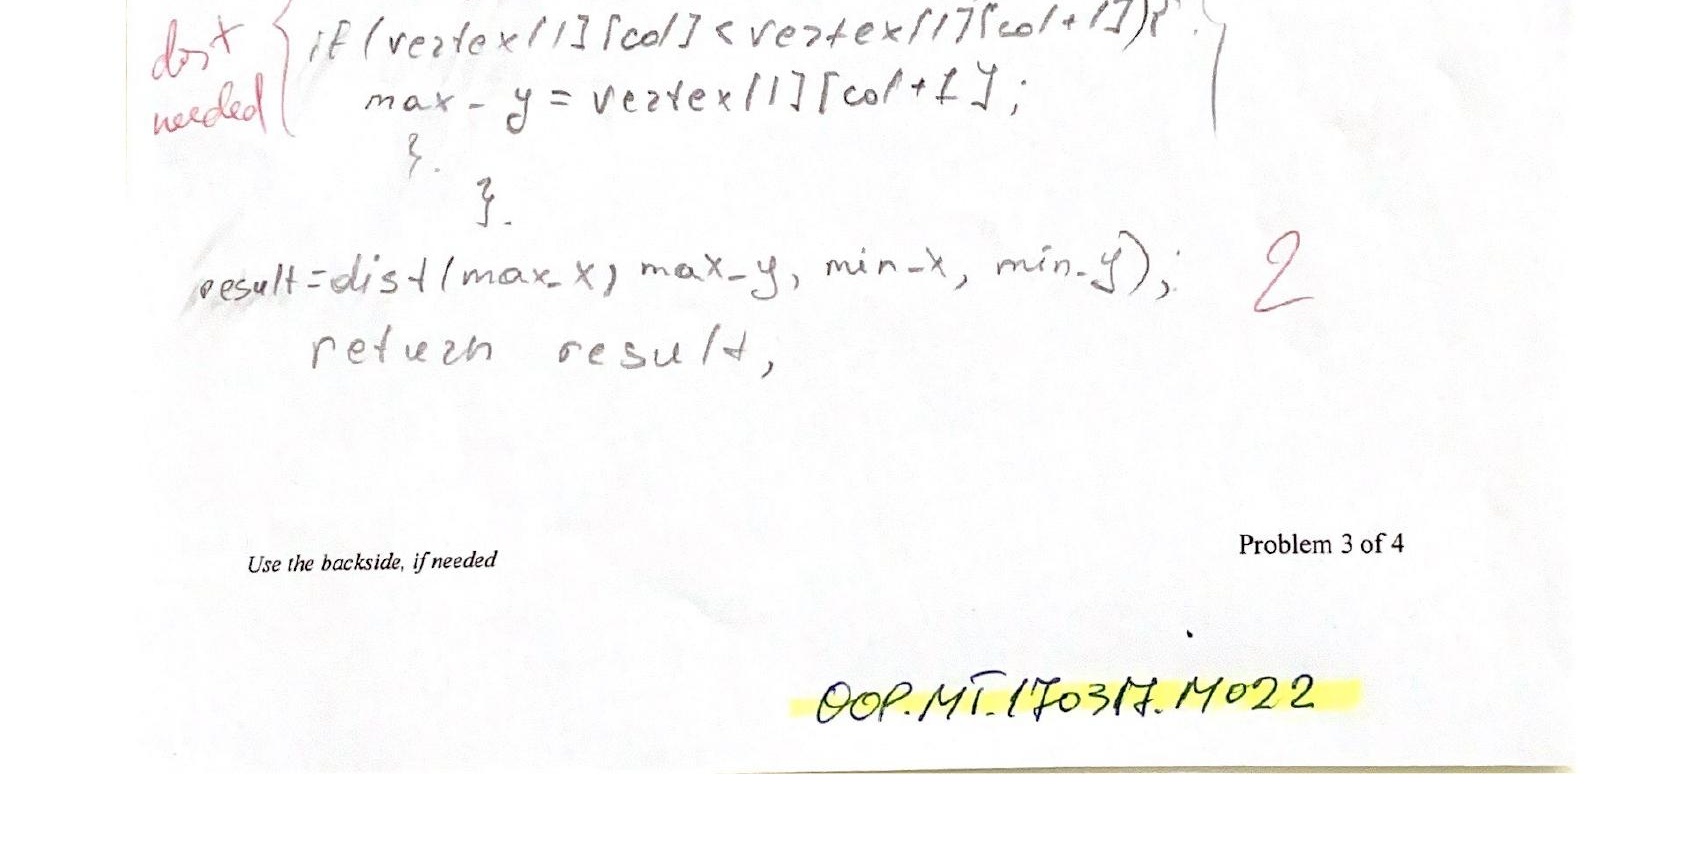 dist { if (vertex[1][col] < vertex[1][col+1]){
needed max-y = vertex[1][col+1];
}.
}.
result = dist(max-x, max-y, min-x, min-y); 2
return result,
Use the backside, if needed
Problem 3 of 4
OOP.MT.170317.M022